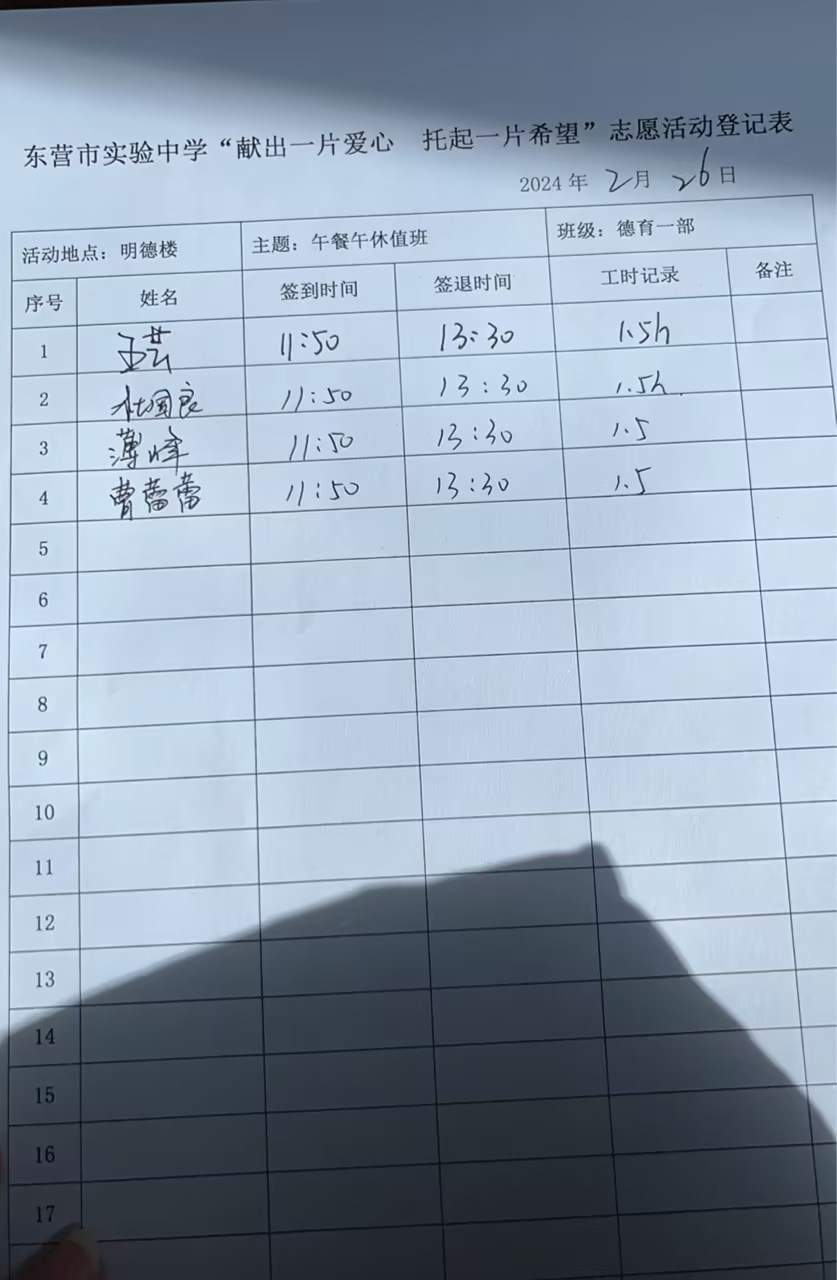 东营市实验中学“献出一片爱心 托起一片希望”志愿活动登记表
2024 年 2月 26日
活动地点：明德楼 主题：午餐午休值班 班级：德育一部
序号 姓名 签到时间 签退时间 工时记录 备注
1 王芸 11:50 13:30 1.5h
2 杜国良 11:50 13:30 1.5h
3 薄峰 11:50 13:30 1.5
4 曹蕾蕾 11:50 13:30 1.5
5
6
7
8
9
10
11
12
13
14
15
16
17